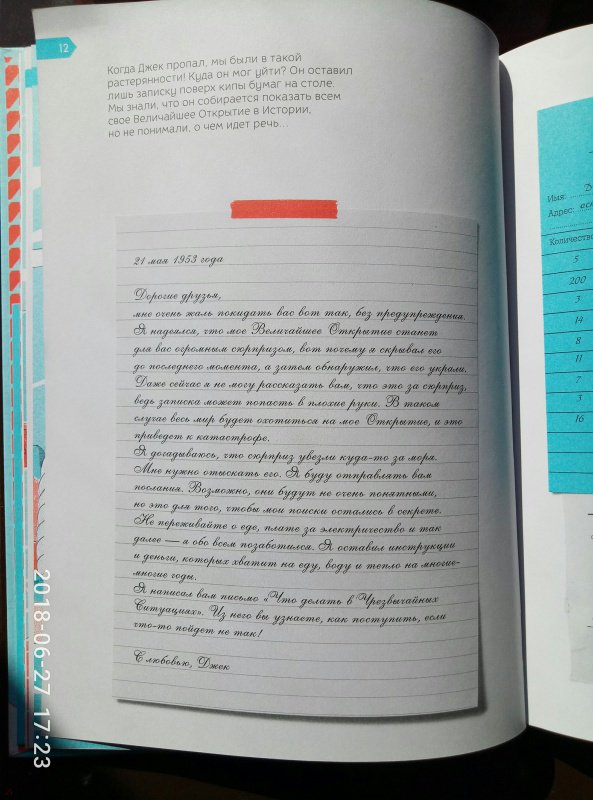 12
Когда Джек пропал, мы были в такой
растерянности! Куда он мог уйти? Он оставил
лишь записку поверх кипы бумаг на столе.
Мы знали, что он собирается показать всем
свое Величайшее Открытие в Истории,
но не понимали, о чем идет речь...
21 мая 1953 года
Дорогие друзья,
мне очень жаль покидать вас вот так, без предупреждения.
Я надеялся, что мое Величайшее Открытие станет
для вас огромным сюрпризом, вот почему я скрывал его
до последнего момента, а затем обнаружил, что его украли.
Даже сейчас я не могу рассказать вам, что это за сюрприз,
ведь записка может попасть в плохие руки. В таком
случае весь мир будет охотиться на мое Открытие, и это
приведет к катастрофе.
Я догадываюсь, что сюрприз увезли куда-то за моря.
Мне нужно отыскать его. Я буду отправлять вам
послания. Возможно, они будут не очень понятными,
но это для того, чтобы мои поиски остались в секрете.
Не переживайте о еде, плате за электричество и так
далее — я обо всем позаботился. Я оставил инструкции
и деньги, которых хватит на еду, воду и тепло на многие-
многие годы.
Я написал вам письмо «Что делать в Чрезвычайных
Ситуациях». Из него вы узнаете, как поступить, если
что-то пойдет не так!
С любовью, Джек
Имя:
Адрес:
Количество
5
200
3
14
8
11
7
3
16
2018-06-27 17:23